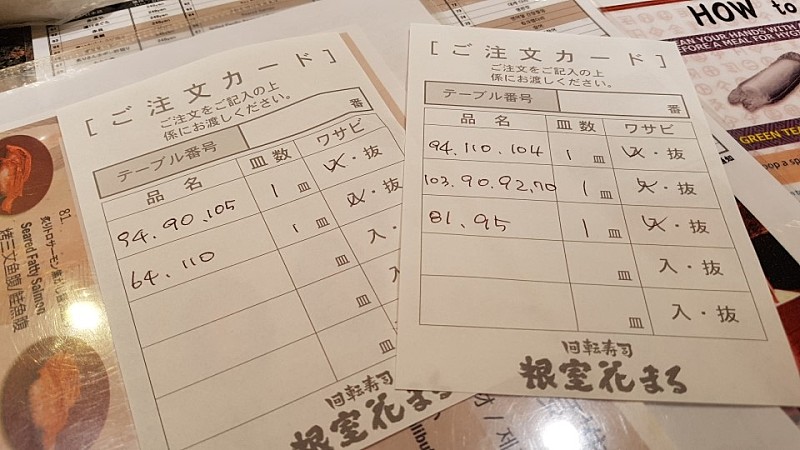 [ご注文カード]
ご注文をご記入の上
係にお渡しください。
テーブル番号 番
品名 皿数 ワサビ
94.90.105 1皿 入・抜
64.110 1皿 入・抜
皿 入・
皿
皿
回転寿司
根室花まる
[ご注文カード]
ご注文をご記入の上
係にお渡しください。
テーブル番号 番
品名 皿数 ワサビ
94.110.104 1皿 入・抜
103.90.92.70 1皿 入・抜
81.95 1皿 入・抜
皿 入・抜
皿 入・抜
回転寿司
根室花まる
HOW to
EAN YOUR HANDS WITH
EFORE A MEAL FOR HYG
GREEN TEA
op a sp
81.
Seared Fatty Salmon